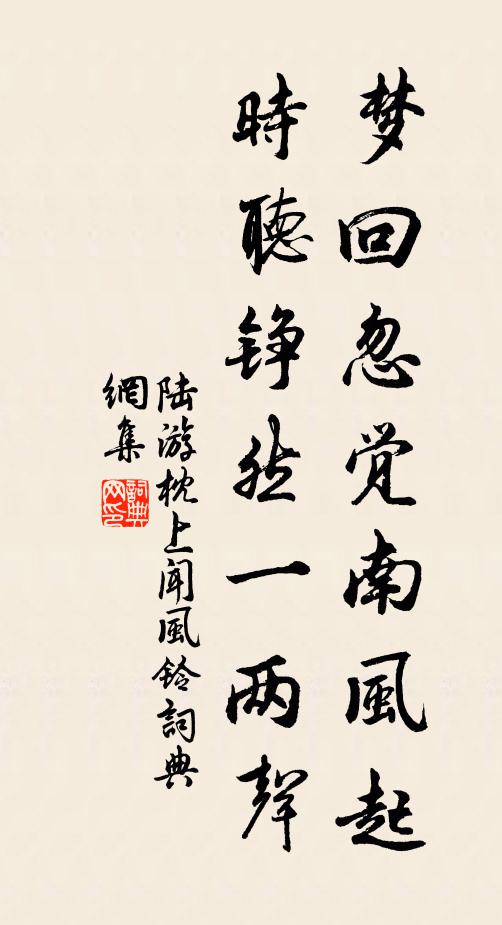 梦回忽觉南風起
時聽铮然一两聲
陆游枕上闻風铃詞典
網集
詞典
网印